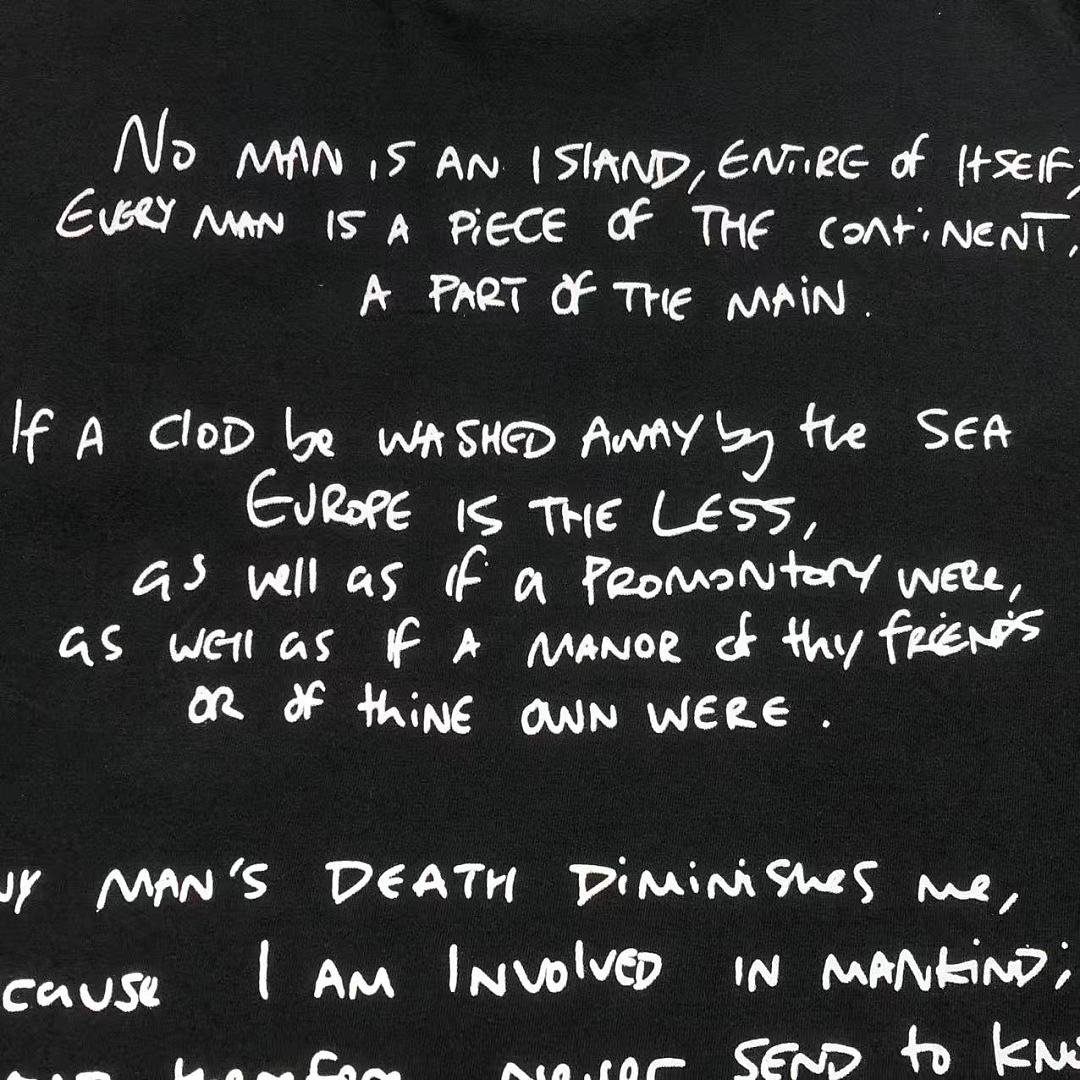 No MAN IS AN ISlAND, ENTiRE of ItSElF,
EVERY MAN IS A PiECE Of THE contiNENT,
A PART Of THE MAiN.
If A ClOD be WASHED AWAY by the SEA
EUROPE IS THE LESS,
as well as if a PROMONtORY WERE,
as well as If A MANOR of thy fRiENDS
OR of thiNE OWN WERE.
MAN'S DEATH DiMiNiSheS me,
cause I AM INVOlVED IN MANKiND;
never SEND to